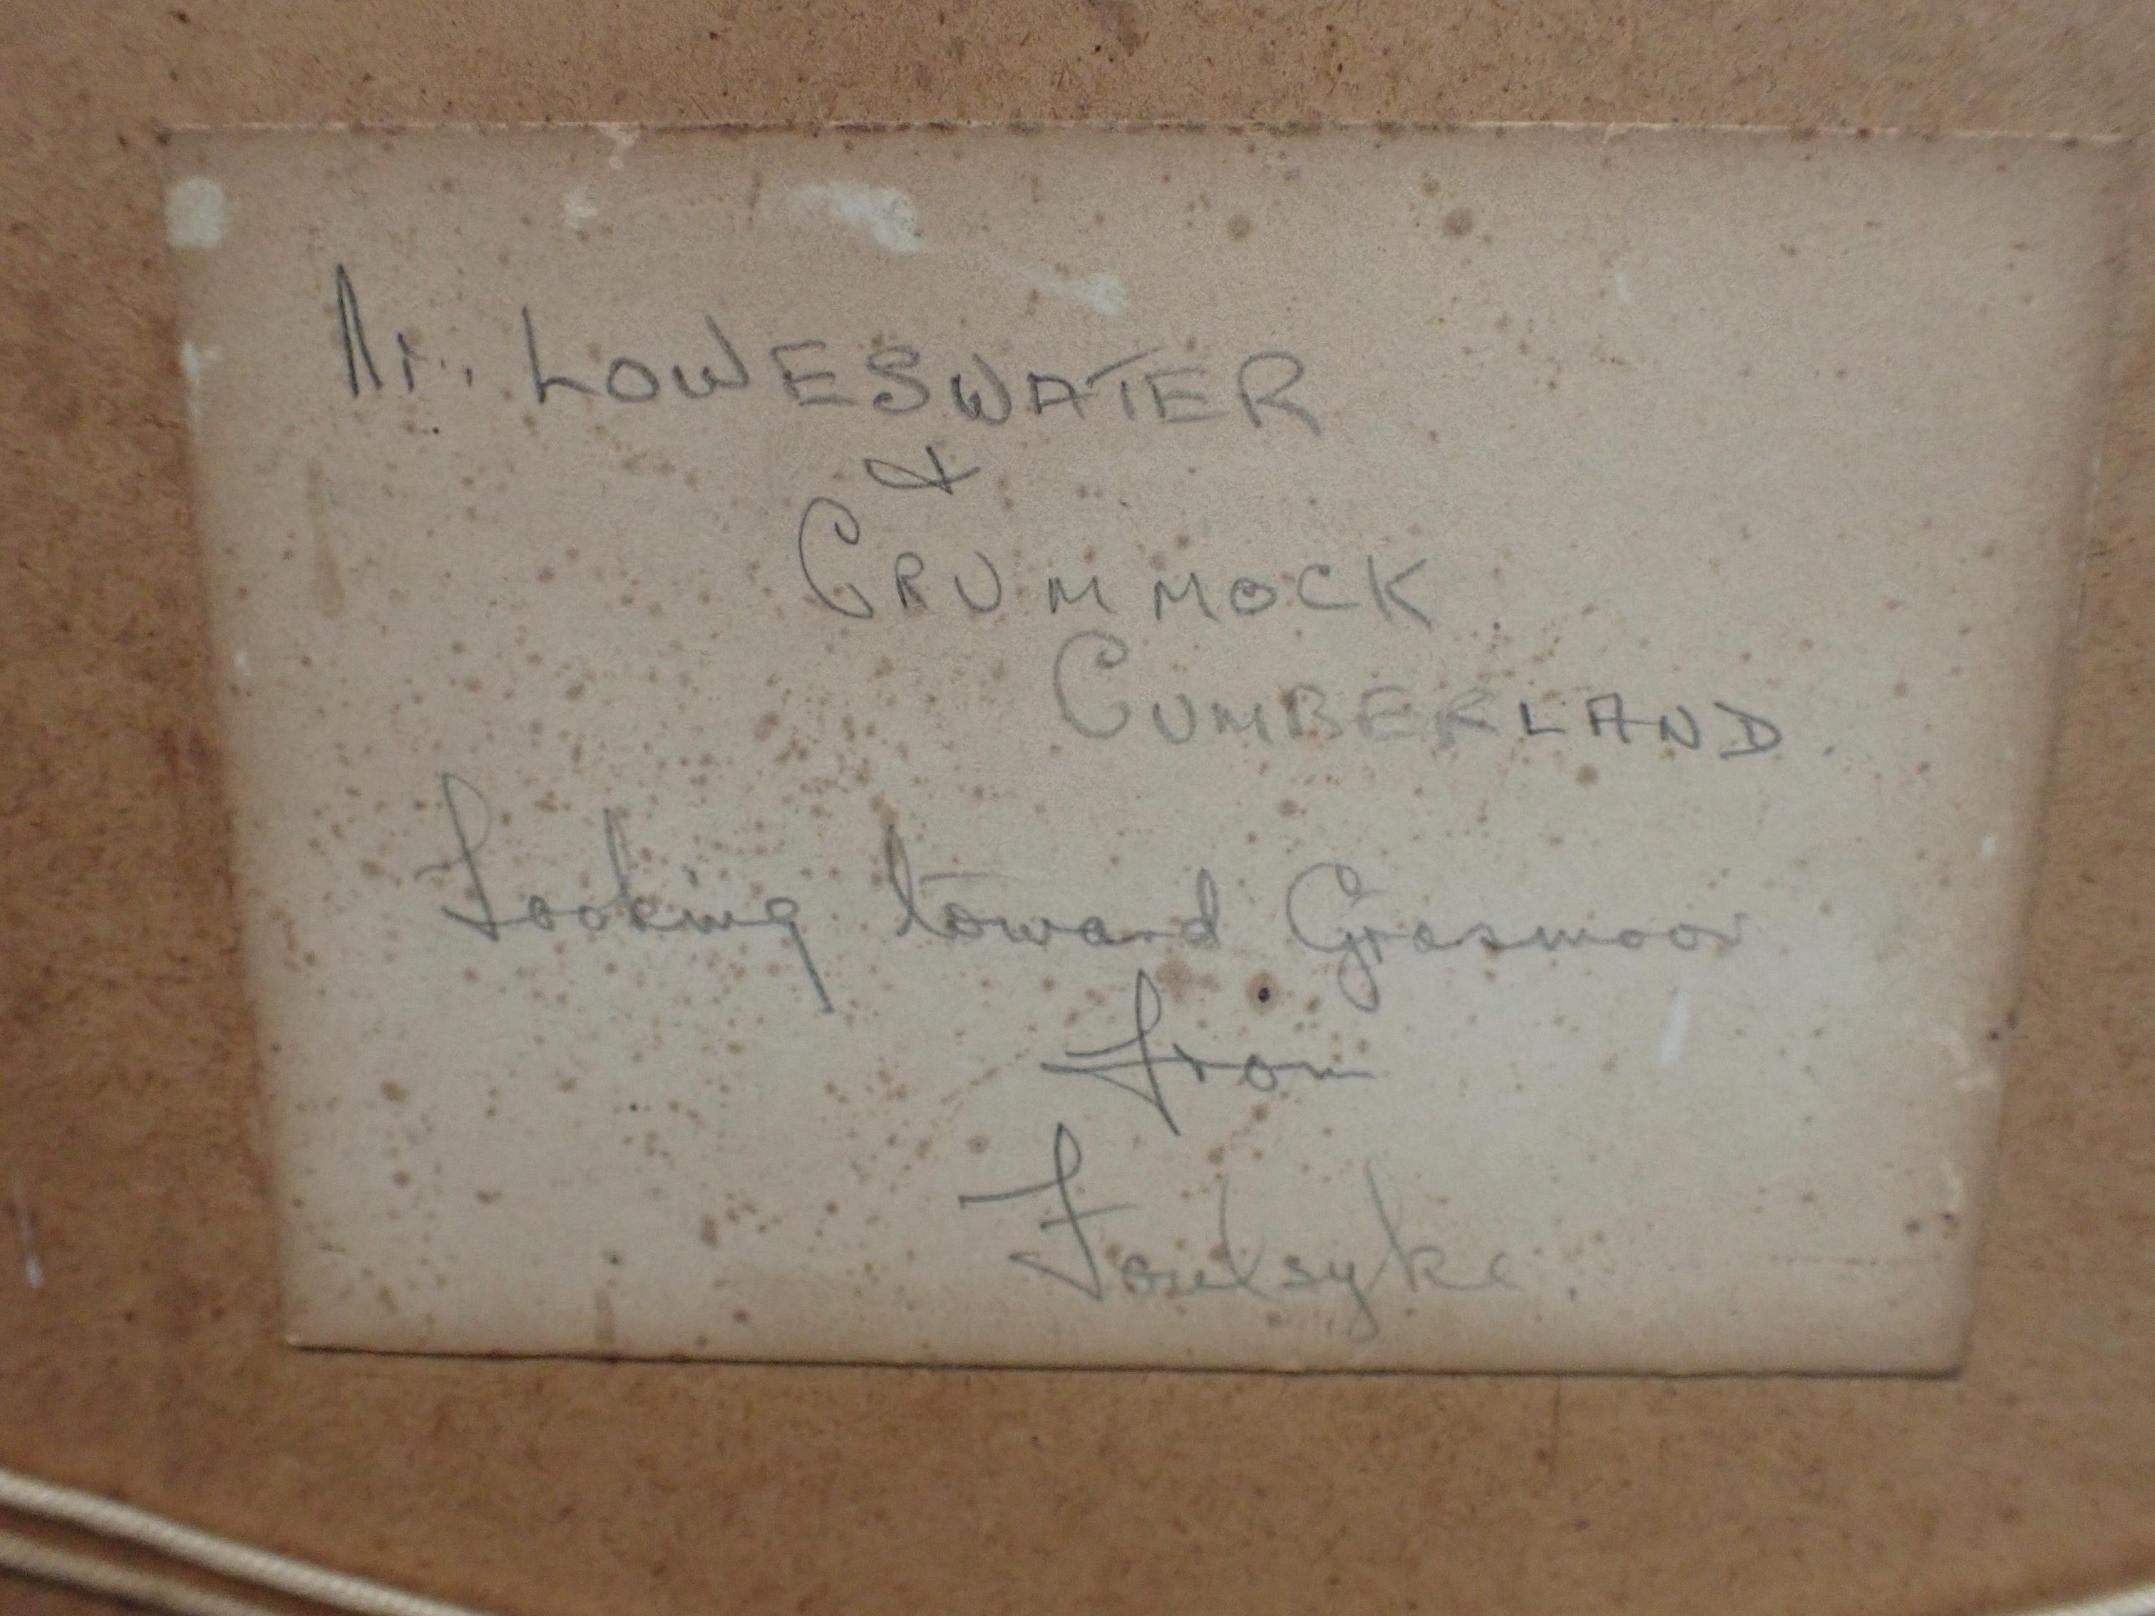 Nr. LOWESWATER
&
CRUMMOCK
CUMBERLAND.
Looking toward Grasmoor
from
Foulsyke.